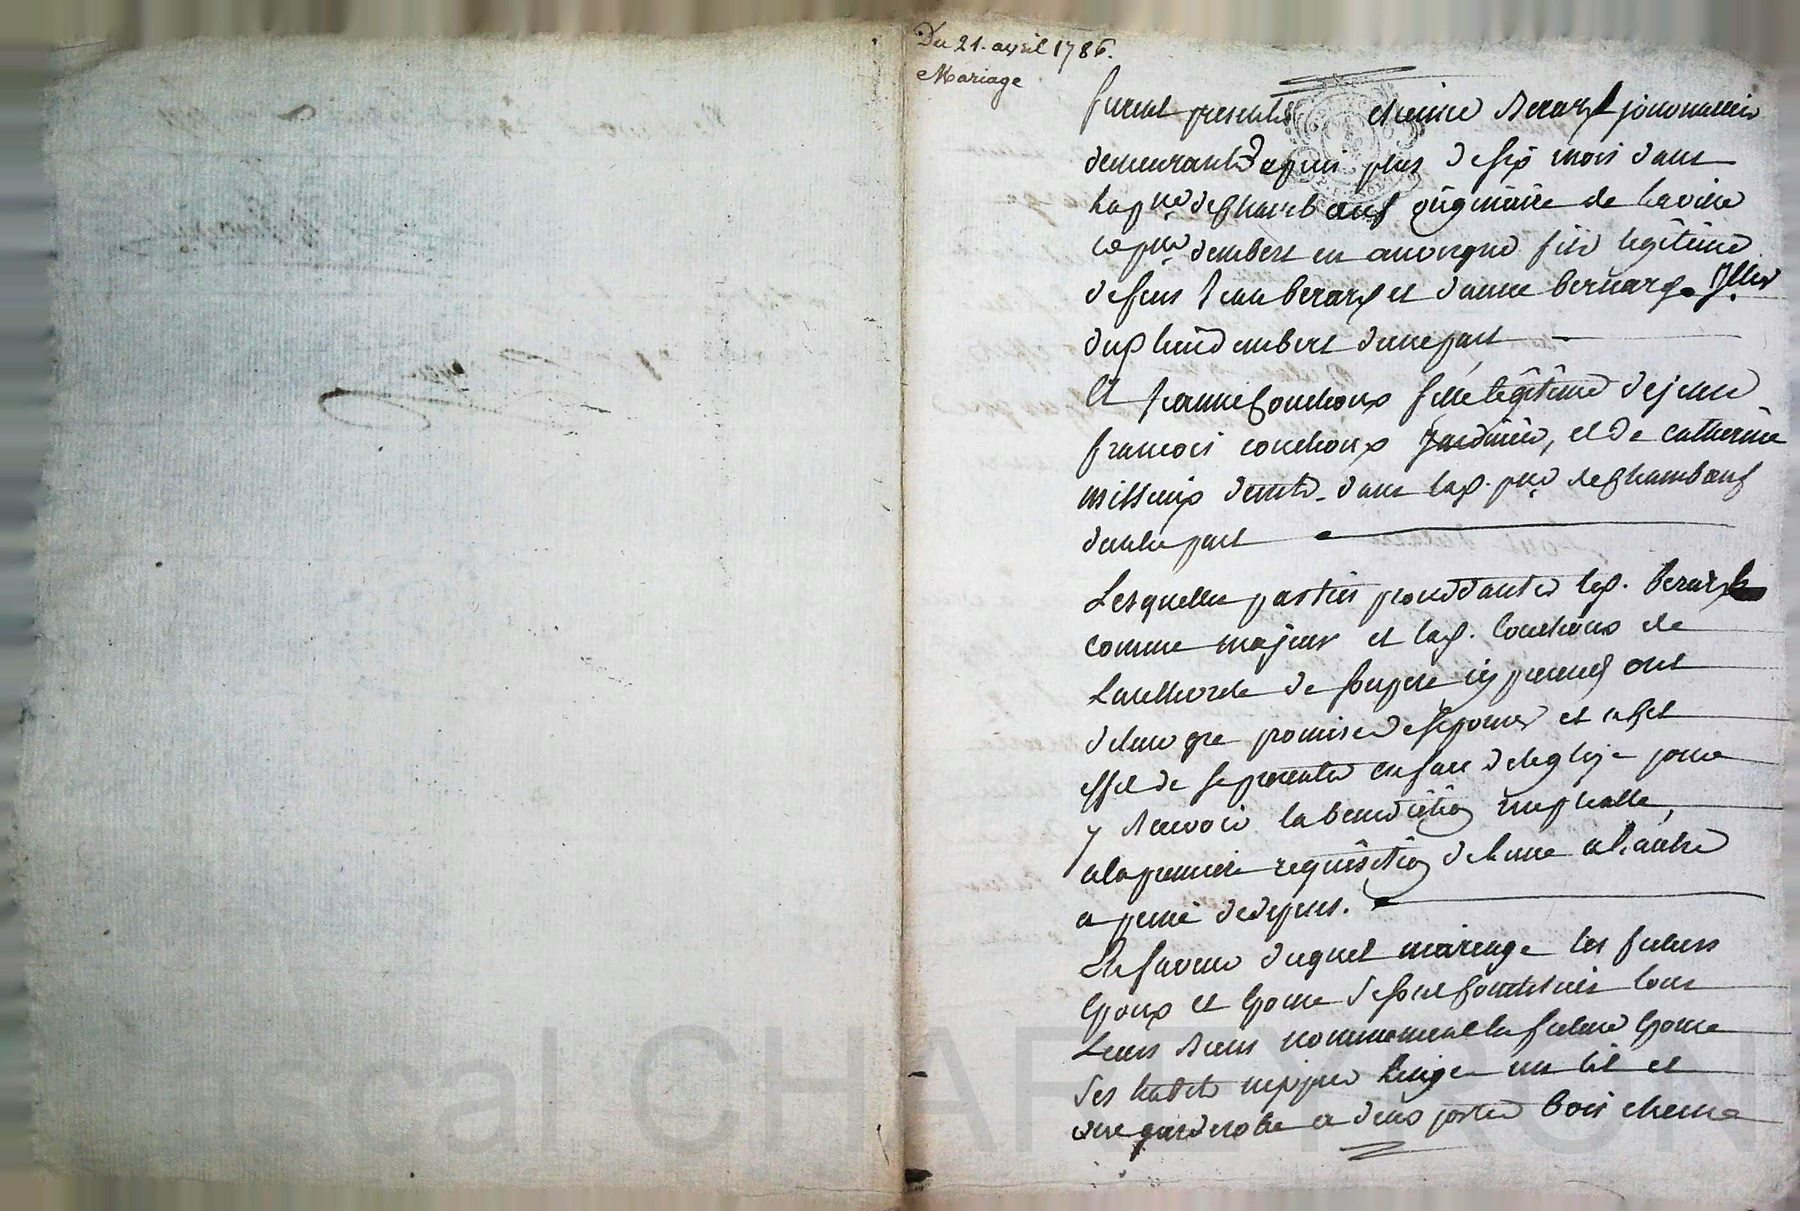 Du 21. avril 1786.
Mariage
furent presents Berard journallier
demeurant depuis plus de six mois dans
la psse de Chambœuf originaire de la ville
et psse dembert en auvergne fils légitime
de feus Jean berard et danne bernard
dud lieu dembert dune part
Et Jeanne Couchoux fille légitime de jean
francois couchoux Jardinier, et de catherine
demts. dans lad. psse de Chambœuf
dautre part
Lesquelles parties procedantes led. berard
comme majeur et lad. Couchoux de
Lauthorité de son pere icy present ont
de leur gre promis de sepouser et a cet
effet de se presenter en face deleglize pour
y recevoir la benediction nuptialle,
a la premiere requisition de lune a lautre
a peine de depens.
En faveur duquel mariage les futurs
Epoux et Epouse se sont constitués tous
Leurs biens nommement la future Epouse
ses habits linge un lit et
une garderobe a deux portes bois chene
Pascal CHAREYRON